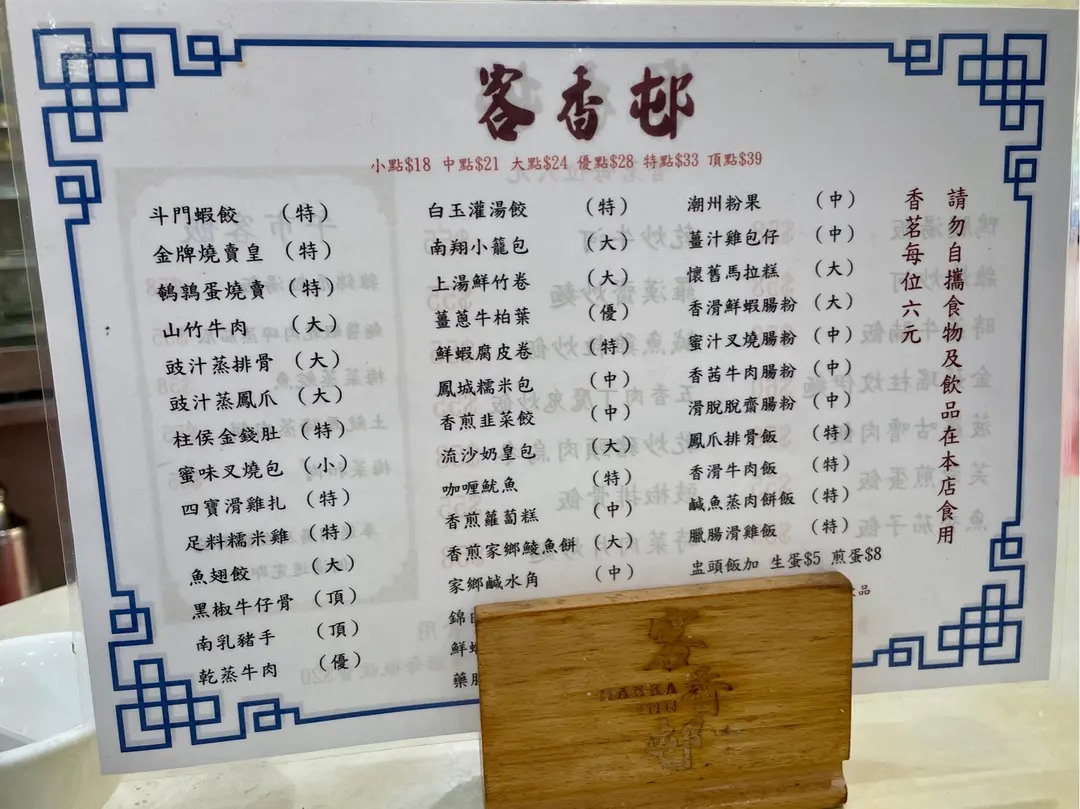 客香邨
小點$18 中點$21 大點$24 優點$28 特點$33 頂點$39
斗門蝦餃 （特）
金牌燒賣皇 （特）
鵪鶉蛋燒賣 （特）
山竹牛肉 （大）
豉汁蒸排骨 （大）
豉汁蒸鳳爪 （大）
柱侯金錢肚 （特）
蜜味叉燒包 （小）
四寶滑雞扎 （特）
足料糯米雞 （特）
魚翅餃 （大）
黑椒牛仔骨 （頂）
南乳豬手 （頂）
乾蒸牛肉 （優）
白玉灌湯餃 （特）
南翔小籠包 （大）
上湯鮮竹卷 （大）
薑蔥牛柏葉 （優）
鮮蝦腐皮卷 （特）
鳳城糯米包 （中）
香煎韭菜餃 （中）
流沙奶皇包 （大）
咖喱魷魚 （特）
香煎蘿蔔糕 （中）
香煎家鄉鯪魚餅 （大）
家鄉鹹水角 （中）
錦
鮮
藥
潮州粉果 （中）
薑汁雞包仔 （中）
懷舊馬拉糕 （大）
香滑鮮蝦腸粉 （大）
蜜汁叉燒腸粉 （中）
香茜牛肉腸粉 （中）
滑脫脫齋腸粉 （中）
鳳爪排骨飯 （特）
香滑牛肉飯 （特）
鹹魚蒸肉餅飯 （特）
臘腸滑雞飯 （特）
盅頭飯加 生蛋$5 煎蛋$8
品
請勿自攜食物及飲品在本店食用
香茗每位六元
客香邨
HAKKA
INN